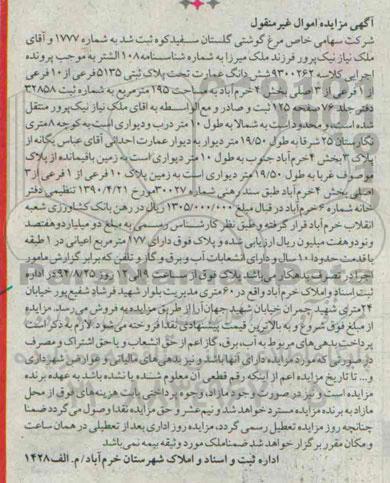 آگهی مزایده اموال غیر منقول
شرکت سهامی خاص مرغ گوشتی گلستان سفیدکوه ثبت شد به شماره ۱۷۷۷ و آقای
ملک نیاز نیک پور فرزند ملک میرزا به شماره شناسنامه ۱۰۸ الشتر به موجب پرونده
اجرایی کلاسه ۹۳۰۰۲۶۲ شش دانگ عمارت تحت پلاک ثبتی ۵۱۳۵ فرعی از ۱۰ فرعی
از ۱ فرعی از ۳ اصلی بخش ۴ خرم آباد به مساحت ۱۹۵ متر مربع به شماره ثبت ۳۲۸۵۸
دفتر جلد ۷۶ صفحه ۱۲۵ ثبت و صادر و مع الواسطه به اقای ملک نیاز نیک پور منتقل
شده است و محدود است به شمالا به طول ۱۰ متر درب و دیواری است به کوچه ۸ متری
نگارستان ۲۵ شرقا به طول ۱۹/۵۰ متر دیوار به دیوار عمارت احداثی آقای عباس یگانه از
پلاک ۳ بخش ۴ خرم آباد جنوب به طول ۱۰ متر دیواری است به زمین باقیمانده از پلاک
موصوف غربا به طول ۱۹/۵۰ متر دیواری است به زمین پلاک ۱۰ فرعی از ۱ فرعی از ۳
اصلی بخش ۴ خرم آباد طبق سند رهنی شماره ۳۰۰۲۷ مورخ ۱۳۹۰/۴/۲۱ تنظیمی دفتر
خانه شماره ۶ خرم آباد در قبال مبلغ ۱۳۰۵/۰۰۰/۰۰۰ ریال در رهن بانک کشاورزی شعبه
انقلاب خرم آباد قرار گرفته و طبق نظر کارشناس رسمی به مبلغ دو میلیارد و هفتصد
و نود و هفت میلیون ریال ارزیابی شده و پلاک فوق دارای ۱۷۷ متر مربع اعیانی در ۱ طبقه
با قدمت حدودا ۱۰ سال و دارای انشعابات آب و برق و گاز و تلفن که برابر گزارش مامور
اجرا در تصرف بدهکار می باشد پلاک فوق از ساعت ۹ الی ۱۲ روز ۹۴/۸/۲۵ در اداره
ثبت اسناد و املاک خرم آباد واقع در ۶۰ متری مدیریت بلوار شهید فرشاد شفیع پور خیابان
۲۴ متری شهید چمران خیابان شهید جهان آرا از طریق مزایده به فروش می رسد. مزایده
از مبلغ فوق شروع و به بالاترین قیمت پیشنهادی نقدا فروخته می شود. لازم به ذکر است
پرداخت بدهی های مربوط به آب، برق، گاز اعم از حق انشعاب و یا حق اشتراک و مصرف
در صورتی که مورد مزایده دارای آنها باشد و نیز بدهی های مالیاتی و عوارض شهرداری
و... تا تاریخ مزایده اعم از اینکه رقم قطعی آن معلوم شده یا نشده باشد به عهده برنده
مزایده است و نیز در صورت وجود مازاد، وجوه پرداختی بابت هزینه های فوق از محل
مازاد به برنده مزایده مسترد خواهد شد و نیم عشر و حق مزایده نقدا وصول می گردد ضمنا
چنانچه روز مزایده تعطیل رسمی گردد، مزایده روز اداری بعد از تعطیلی در همان ساعت
و مکان مقرر برگزار خواهد شد ضمنا ملک مورد وثیقه بیمه نمی باشد
اداره ثبت و اسناد و املاک شهرستان خرم آباد/م. الف ۱۴۲۸